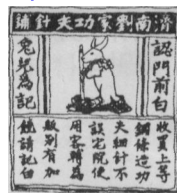 濟南劉家功夫針鋪
認門前白
兔兒為記
收買上等
鋼條造功
夫細針不
誤宅院使
用客轉為
販別有加
饒請記白